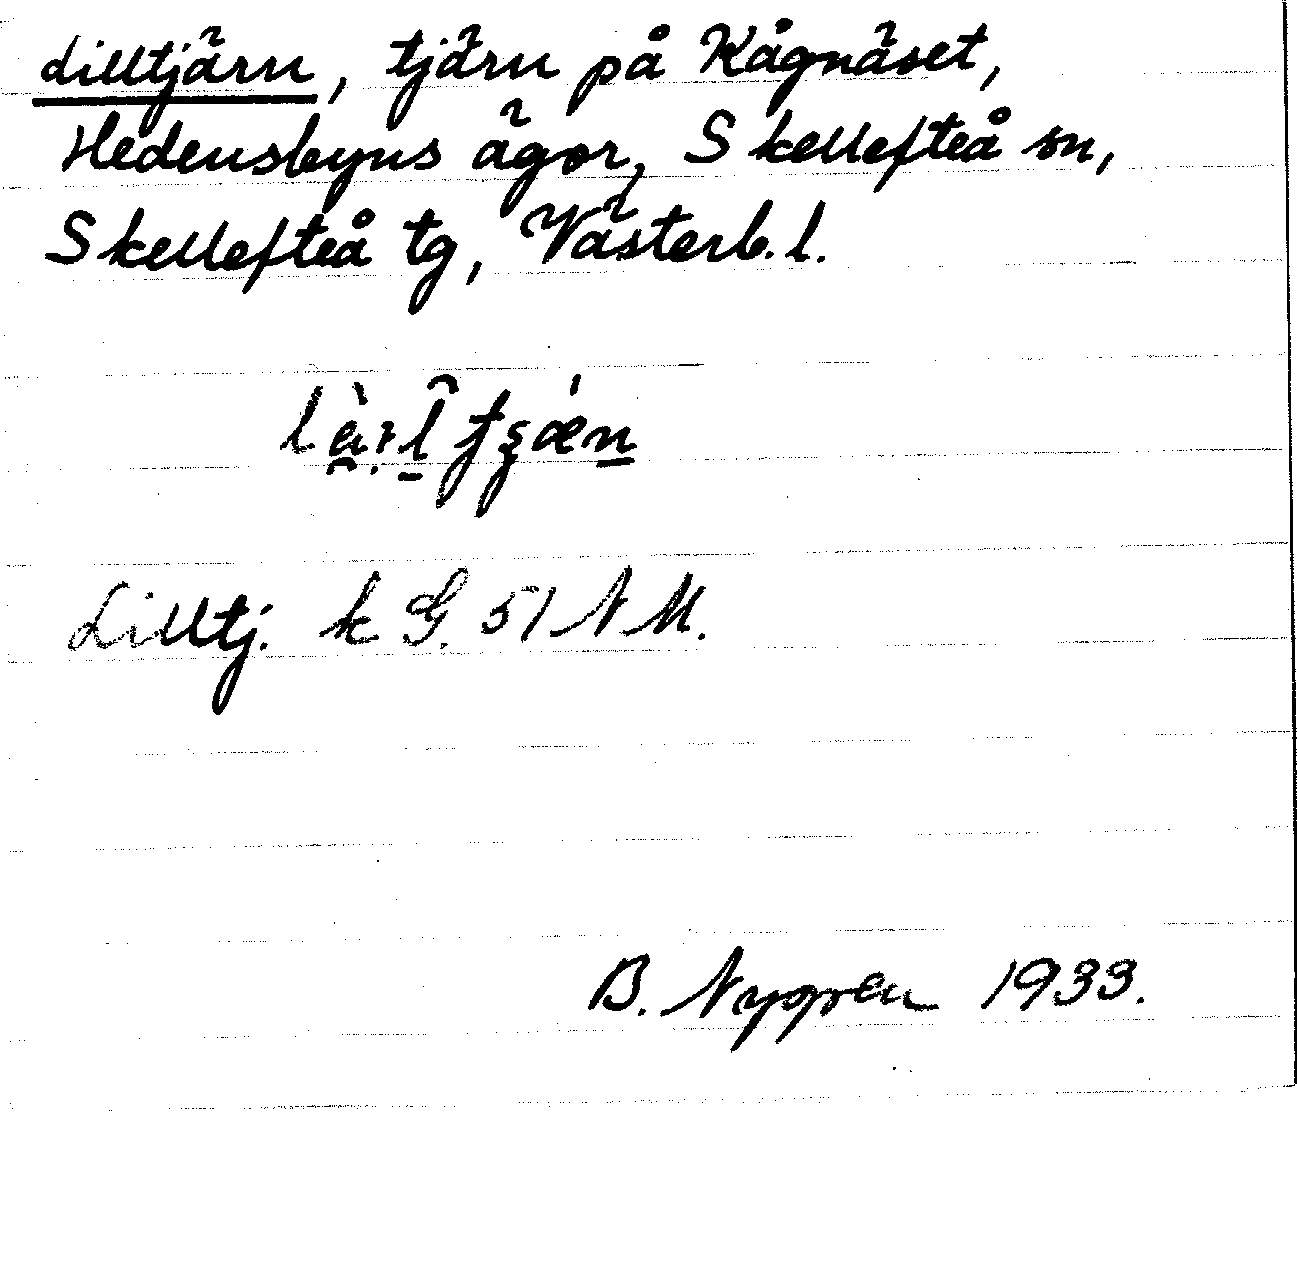 Lilltjärn, tjärn på Kågnäset,
Hedensbyns ägor, Skellefteå sn,
Skellefteå tg, Västerb. l.
Lilltj. k G. 51 N M.
B. Nygren 1933.